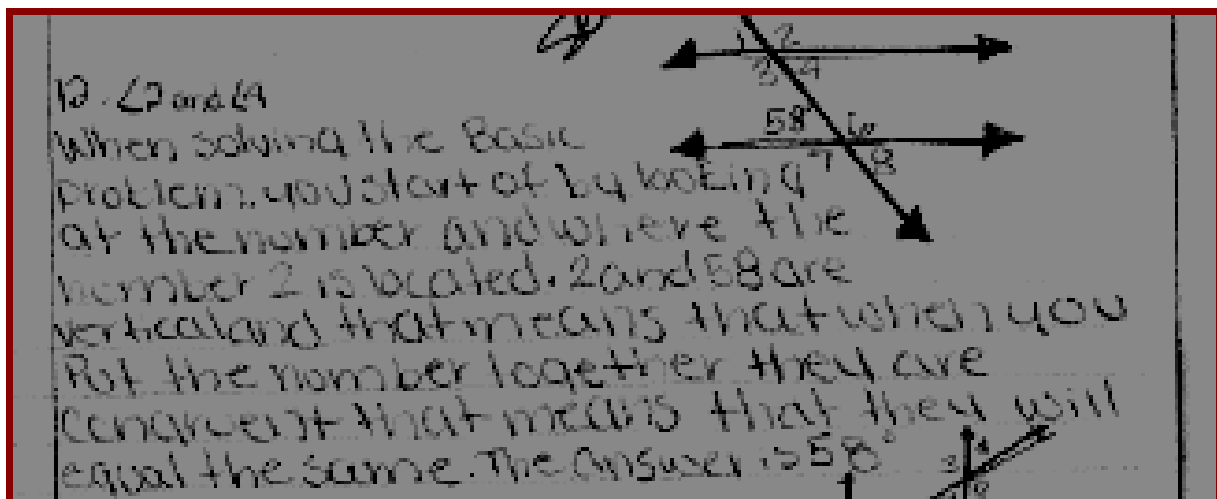 1 2
3 4
12. ∠2 and ∠4
58° 6
When solving the Basic
7 8
problem, you start of by looking
at the number and where the
number 2 is located. 2 and 58 are
vertical and that means that when you
Put the number together they are
congruent that means that they will
equal the same. The answer is 58°